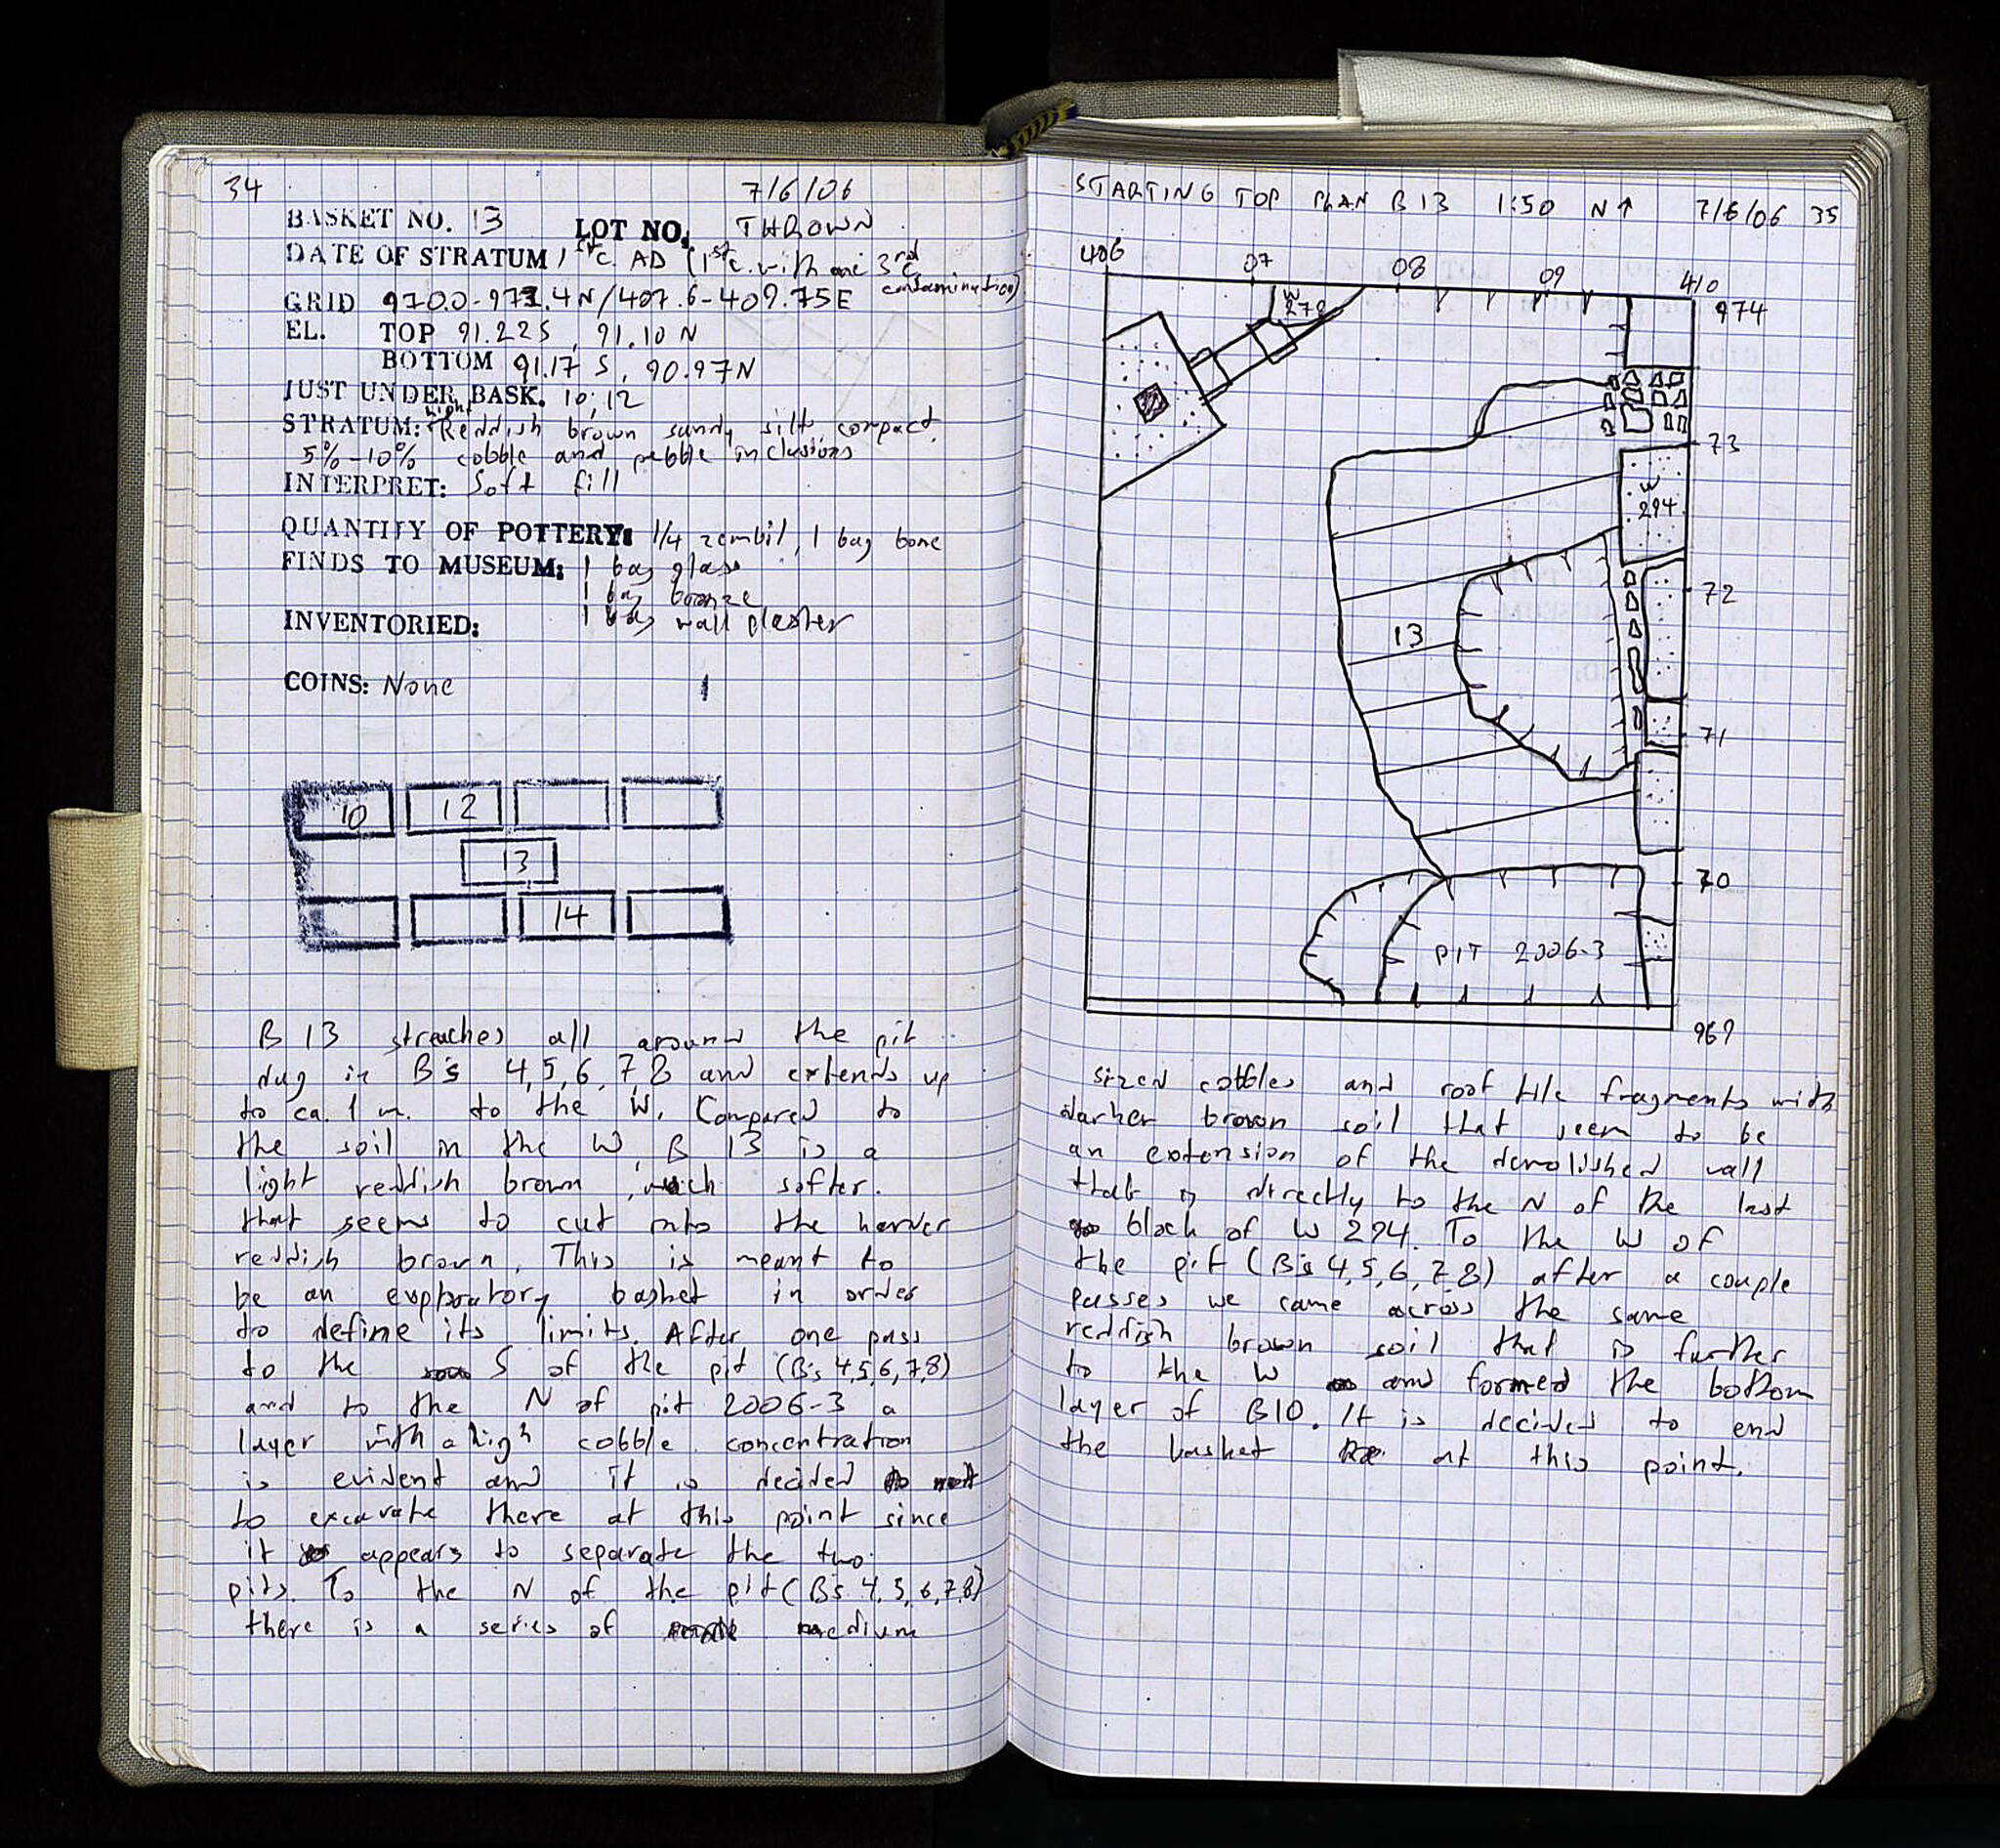 34 7/6/06
BASKET NO. 13 LOT NO. THROWN
DATE OF STRATUM 1st c. AD (1st c. with one 3rd c. contamination)
GRID 970.0-973.4N/407.6-409.75E
EL. TOP 91.22S, 91.10 N
BOTTOM 91.17 S, 90.97N
JUST UNDER BASK. 10, 12
STRATUM: light Reddish brown sandy silt, compact.
5%-10% cobble and pebble inclusions
INTERPRET: Soft fill
QUANTITY OF POTTERY: 1/4 zembil, 1 bag bone
FINDS TO MUSEUM: 1 bag glass
1 bag bronze
INVENTORIED: 1 bag wall plaster
COINS: None
10 12
13
14
B 13 streaches all around the pit
dug in B's 4,5,6,7,8 and extends up
to ca. 1 m. to the W. Compared to
the soil in the W, B 13 is a
light reddish brown, much softer.
that seems to cut into the harder
reddish brown. This is meant to
be an exploratory basket in order
to define its limits. After one pass
to the S of the pit (B's 4,5,6,7,8)
and to the N of pit 2006-3 a
layer with a high cobble concentration
is evident and it is decided not
to excavate there at this point since
it appears to separate the two
pits. To the N of the pit (B's 4,5,6,7,8)
there is a series of medium
STARTING TOP PLAN B 13 1:50 N↑ 7/6/06 35
406 07 08 09 410
974
W 272
73
W 294
72
13
71
70
PIT 2006-3
969
sized cobbles and roof tile fragments with
darker brown soil that seem to be
an extension of the demolished wall
that is directly to the N of the last
block of W 294. To the W of
the pit (B's 4,5,6,7,8) after a couple
passes we came across the same
reddish brown soil that is further
to the W and formed the bottom
layer of B10. It is decided to end
the basket at this point.